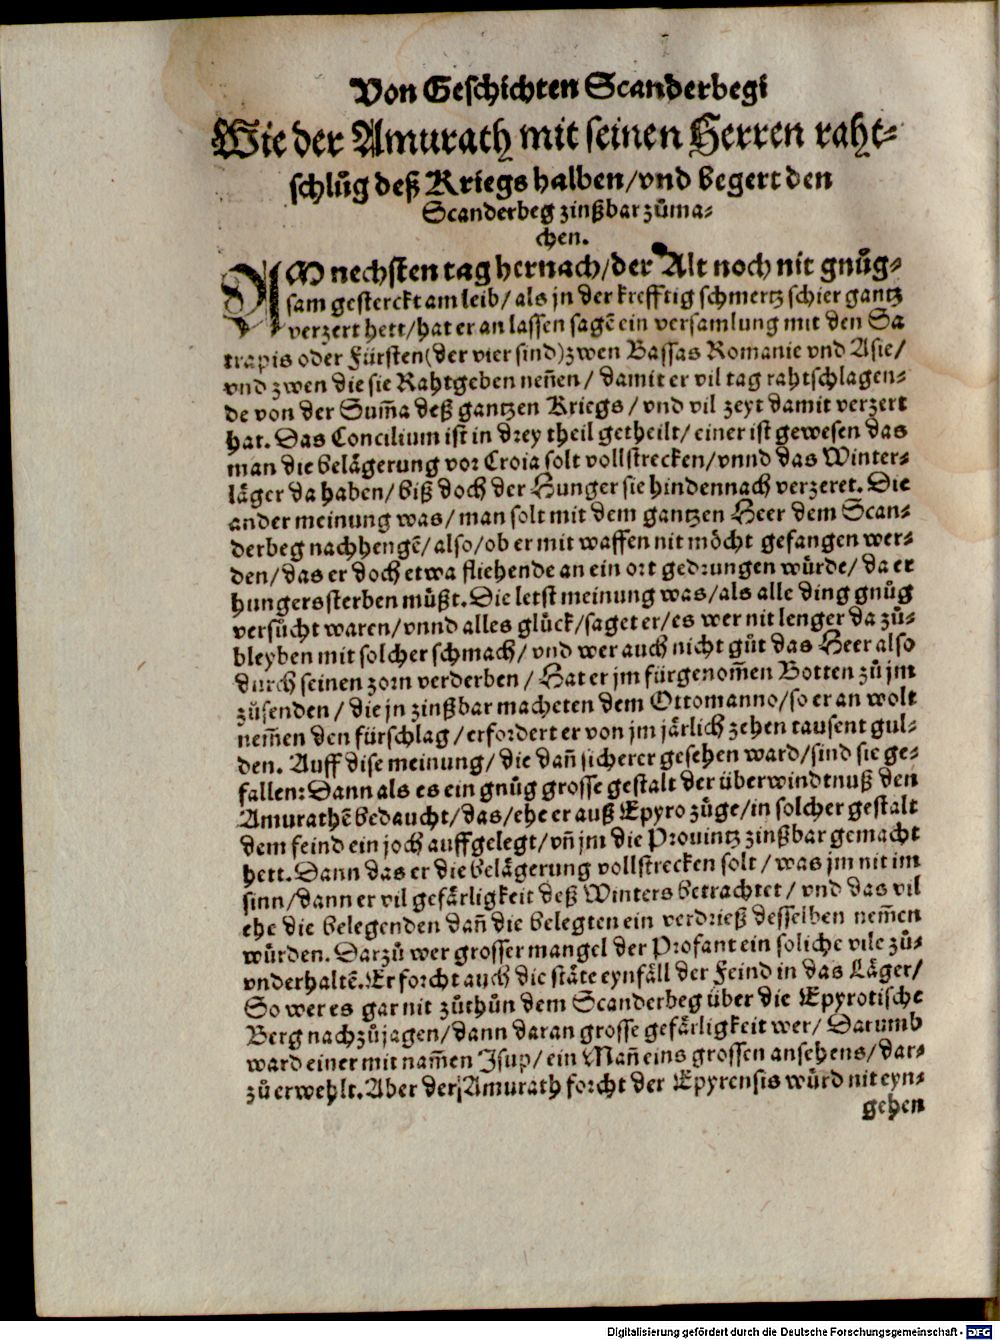 Von Geschichten Scanderbegi
Wie der Amurath mit seinen Herren raht-
schlůg deß Kriegs halben/vnd begert den
Scanderbeg zinßbar zůma-
chen.
AM nechsten tag hernach/der Alt noch nit gnůg-
sam gesterckt am leib/als jn der krefftig schmertz schier gantz
verzert hett/hat er an lassen sagē ein versamlung mit den Sa
trapis oder Fürsten(der vier sind)zwen Bassas Romanie vnd Asie/
vnd zwen die sie Rahtgeben neñen/damit er vil tag rahtschlagen-
de von der Sum̃a deß gantzen Kriegs/vnd vil zeyt damit verzert
hat. Das Concilium ist in drey theil getheilt/einer ist gewesen das
man die belägerung vor Croia solt vollstrecken/vnnd das Winter-
läger da haben/biß doch der Hunger sie hindennach verzeret. Die
ander meinung was/man solt mit dem gantzen Heer dem Scan-
derbeg nachhengē/also/ob er mit waffen nit möcht gefangen wer-
den/das er doch etwa fliehende an ein ort gedrungen würde/da er
hungers sterben müßt. Die letst meinung was/als alle ding gnůg
versůcht waren/vnnd alles glück/saget er/es wer nit lenger da zů-
bleyben mit solcher schmach/vnd wer auch nicht gůt das Heer also
durch seinen zorn verderben/Hat er jm fürgenom̃en Botten zů jm
zůsenden/die jn zinßbar macheten dem Ottomanno/so er an wolt
nem̃en den fürschlag/erfordert er von jm järlich zehen tausent gul-
den. Auff dise meinung/die dañ sicherer gesehen ward/sind sie ge-
fallen: Dann als es ein gnůg grosse gestalt der überwindtnuß den
Amurathē bedaucht/das/ehe er auß Epyro zůge/in solcher gestalt
dem feind ein joch auffgelegt/vñ jm die Prouintz zinßbar gemacht
hett. Dann das er die belägerung vollstrecken solt/was jm nit im
sinn/dann er vil gefärligkeit deß Winters betrachtet/vnd das vil
ehe die belegenden dañ die belegten ein verdrieß desselben nem̃en
würden. Darzů wer grosser mangel der Profant ein soliche vile zů-
vnderhaltē. Er forcht auch die stäte eynfäll der Feind in das Läger/
So wer es gar nit zůthůn dem Scanderbeg über die Epyrotische
Berg nachzůjagen/dann daran grosse gefärligkeit wer/Darumb
ward einer mit nam̃en Isup/ein Mañ eins grossen ansehens/dar-
zů erwehlt. Aber der Amurath forcht der Epyrensis würd nit eyn-
gehen
Digitalisierung gefördert durch die Deutsche Forschungsgemeinschaft - DFG